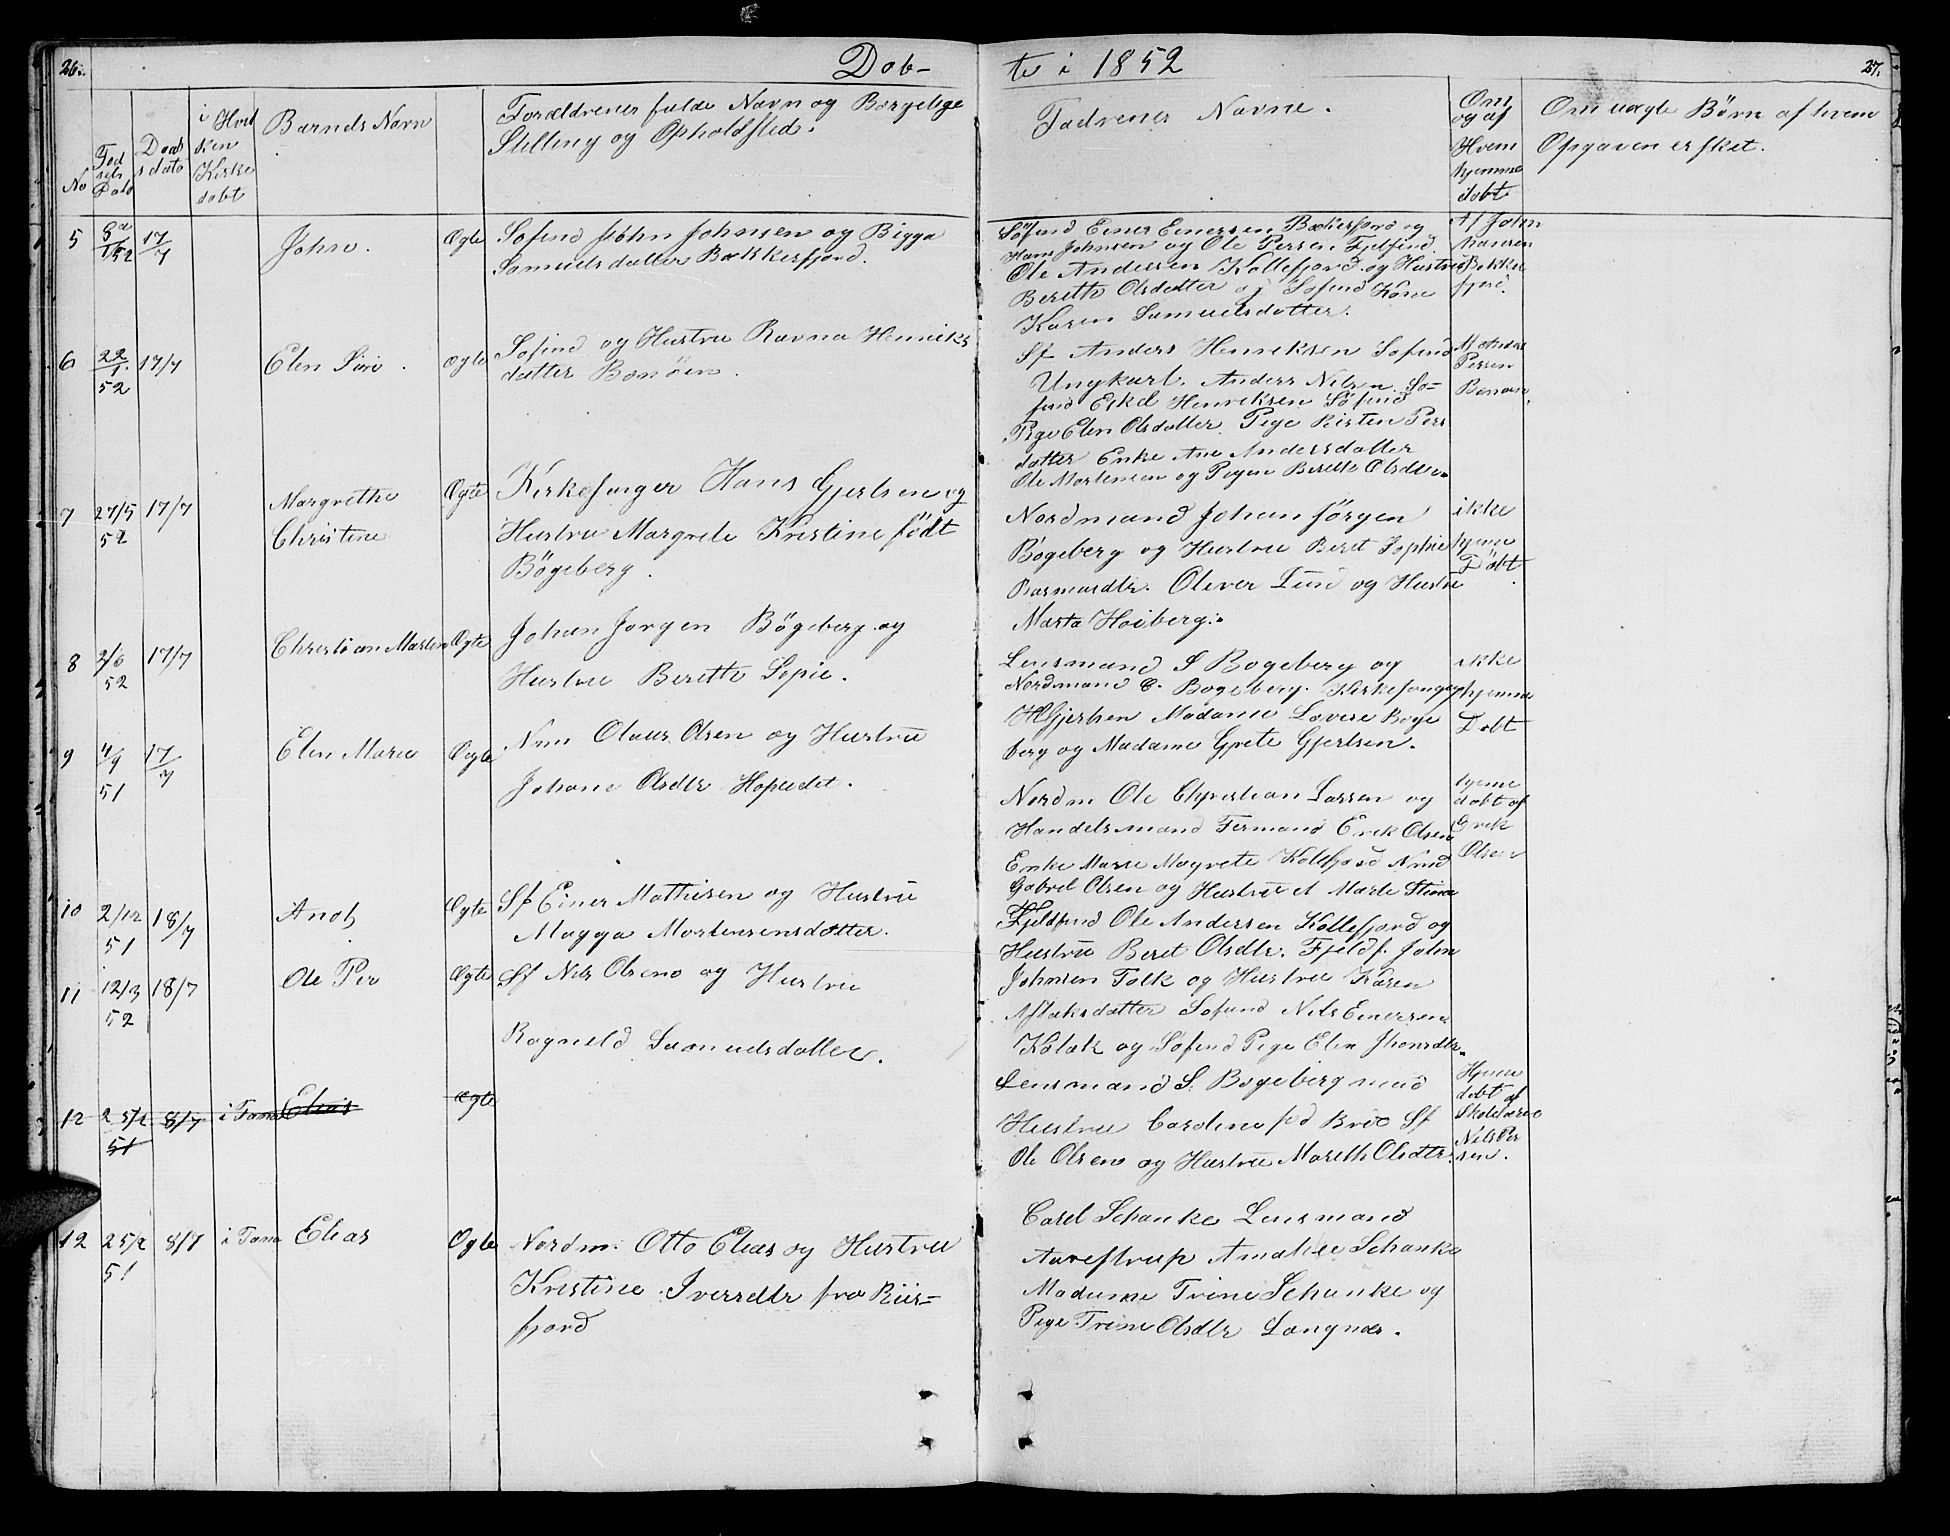 26.
Døb-
te i 1852
27.
No
Fød
sels
Dato
Daab
s dato
i Hvil
ken
Kirke
døbt
Barnets Navn
Forældrenes fulde Navn og Borgelige
Stilling og Opholdsted.
Fadrenes Navne.
Om
og af
Hvem
hjemme
døbt
Om uægte Børn af hvem
Opgaven er sket.
5
17/7
John.
Ægte
Søfind John Johnsen og Bigga
Samuelsdatter Bækkerfjord.
Søfind Einer Einersen Bækerfjord og
Hans Johnsen og Ole Persen Fjelfind.
Ole Andersen Kollefjord og Hustru
Berethe Olsdatter og Søfind Kone
Karen Samuelsdatter.
Af John
Hansen
Bekke
fjord.
6
22/1
52
17/7
Elen Siri.
ægte
Søfind og Hustru Ravna Henriks
datter
Sf Anders Henriksen Søfind
Ungkarl. Anders Nilsen. Sø-
find Eskel Henriksen Søfind
Pige Elen Olsdatter. Pige Kirsten Pers
datter Enke Ane Andersdatter
Ole Mortensen og Pigen Berethe Olsdtr.
Af Anders
Persen
7
27/5
52
17/7
Margrethe
Christine
Ægte
Kirkesanger Hans Gjertsen og
Hustru Margrete Kristine født
Bøgeberg.
Nordmand Johan Jörgen
Bøgeberg og Hustru Beret Sophie
Rasmusdtr. Oliver Lund og Hustru
Marta Hoiberg.
ikke
hjeme
Døbt
8
2/6
52
17/7
Christian Marten
Ægte
Johan Jørgen Bøgeberg og
Hustru Berethe Sopie.
Lensmand S Bogeberg og
Nordmand C. Bogeberg. Kirkesanger
H Gjertsen Madame Lovise Boge
berg og Madame Grete Gjertsen.
ikke
hjemme
Døbt
9
4/9
51
17/7
Elen Marie
Ægte
Nm Olaus Olsen og Hustru
Johane Olsdtr Hopseidet.
Nordm Ole Christian Larsen og
Handelsmand Fermand Erik Olsen
Enke Marie Magrete Kollefjord Nmd
Gabriel Olsen og Hustru A Marte Stina
hjeme
døbt af
Erik
Olsen
10
2/12
51
18/7
Ægte
Sf Einer Mathisen og Hustru
Magga Mortensensdatter.
Fjeldfind Ole Andersen Kollefjord og
Hustru Beret Olsdtr. Fjeldf. John
11
12/3
52
18/7
Ole Per
Ægte
Sf Nils Olsen og Hustru
Ragneld Samuelsdatter.
Johnsen Tolk og Hustru Karen
Aslaksdatter Søfund Nils Einersen
og Søfind Pige Elen Jhonsdtr.
12
25/2
51
8/7
i Tana
Elias
ægte
Lensmand S. Bogeberg med
Hustru Cardine fød Broc Sf
Ole Olsen og Hustru Mareth Olsdtr.
Hjeme
døbt af
Skolelærer
Nils Per
sen.
12
25/2
51
8/7
i Tana
Elias
Ægte
Nordm. Otto Elias og Hustru
Kristine Iversdtr fra Riis-
fjord
Carel Schanke Lensmand
Aarestrup Amalie Schanke
Madame Trine Schanke og
Pige Trine Olsdtr Langnæs.